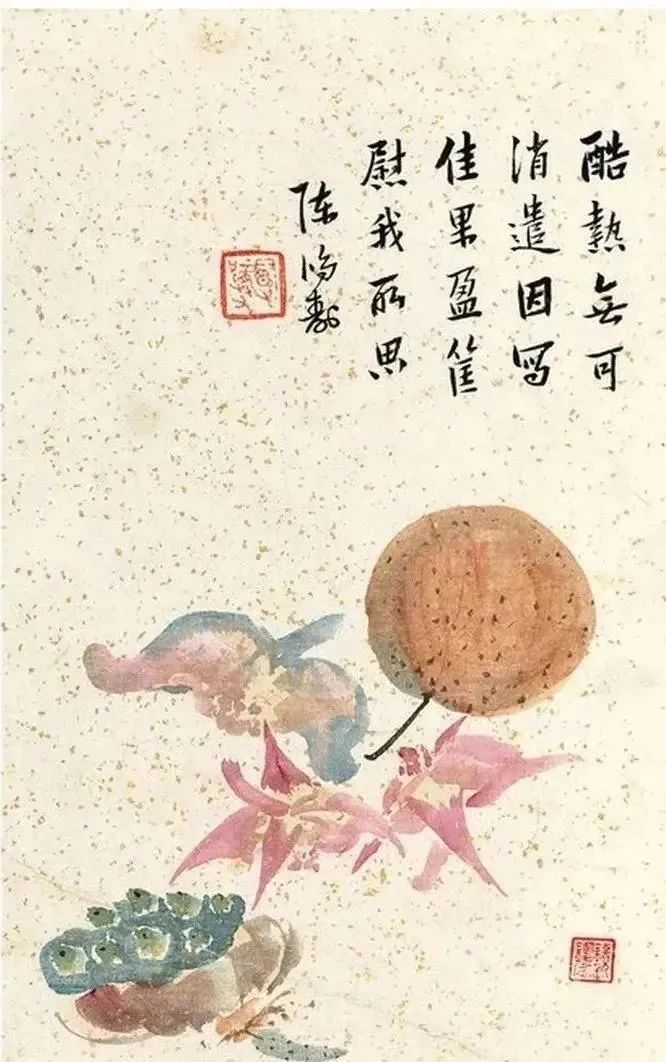 酷熱無可
消遣因寫
佳果盈筐
慰我所思
陈鸿寿